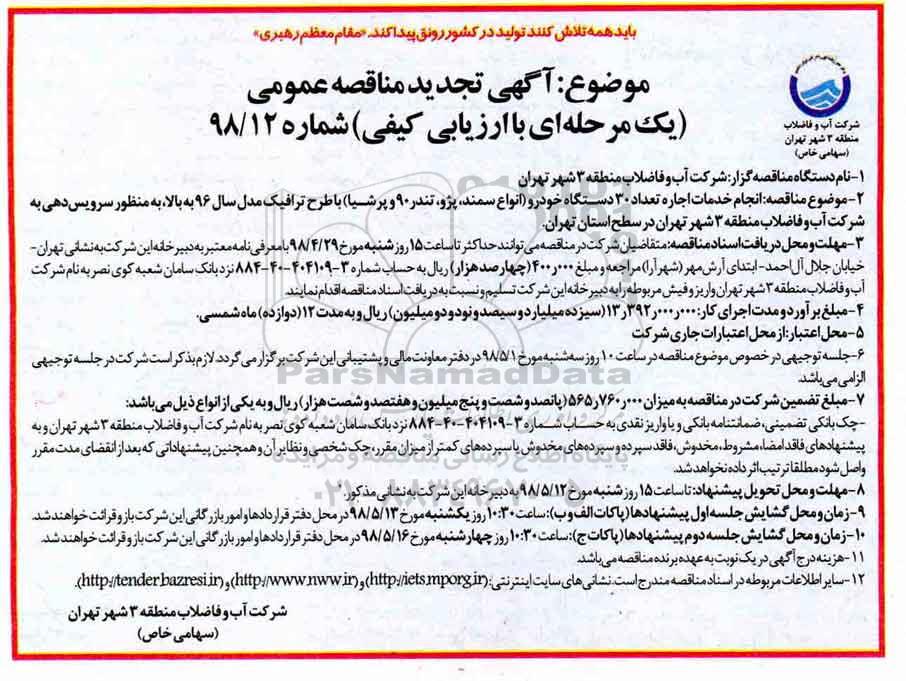 باید همه تلاش کنند تولید در کشور رونق پیدا کند. «مقام معظم رهبری»
موضوع: آگهی تجدید مناقصه عمومی
(یک مرحله‌ای با ارزیابی کیفی) شماره ۹۸/۱۲
شرکت آب و فاضلاب
منطقه ۳ شهر تهران
(سهامی خاص)
۱- نام دستگاه مناقصه گزار: شرکت آب و فاضلاب منطقه ۳ شهر تهران
۲- موضوع مناقصه: انجام خدمات اجاره تعداد ۳۰ دستگاه خودرو (انواع سمند، پژو، تندر۹۰ و پرشیا) با طرح ترافیک مدل سال ۹۶ به بالا، به منظور سرویس دهی به
شرکت آب و فاضلاب منطقه ۳ شهر تهران در سطح استان تهران.
۳- مهلت و محل دریافت اسناد مناقصه: متقاضیان شرکت در مناقصه می توانند حداکثر تا ساعت ۱۵ روز شنبه مورخ ۹۸/۴/۲۹ با معرفی نامه معتبر به دبیرخانه این شرکت به نشانی تهران-
خیابان جلال آل احمد- ابتدای آرش مهر (شهرآرا) مراجعه و مبلغ ۴۰۰ر۰۰۰ (چهارصد هزار) ریال به حساب شماره ۳-۴۰۴۱۰۹-۴۰-۸۸۴ نزد بانک سامان شعبه کوی نصر به نام شرکت
آب و فاضلاب منطقه ۳ شهر تهران واریز و فیش مربوطه را به دبیرخانه این شرکت تسلیم و نسبت به دریافت اسناد مناقصه اقدام نمایند.
۴- مبلغ برآورد و مدت اجرای کار: ۱۳ر۳۹۲ر۰۰۰ر۰۰۰ (سیزده میلیارد و سیصد و نود و دو میلیون) ریال و به مدت ۱۲ (دوازده) ماه شمسی.
۵- محل اعتبار: از محل اعتبارات جاری شرکت
۶- جلسه توجیهی در خصوص موضوع مناقصه در ساعت ۱۰ روز سه شنبه مورخ ۹۸/۵/۱ در دفتر معاونت مالی و پشتیبانی این شرکت برگزار می گردد. لازم بذکر است شرکت در جلسه توجیهی
الزامی می باشد.
۷- مبلغ تضمین شرکت در مناقصه به میزان ۵۶۵ر۷۶۰ر۰۰۰ (پانصد و شصت و پنج میلیون و هفتصد و شصت هزار) ریال و به یکی از انواع ذیل می باشد:
-چک بانکی تضمینی، ضمانتنامه بانکی و یا واریز نقدی به حساب شماره ۳-۴۰۴۱۰۹-۴۰-۸۸۴ نزد بانک سامان شعبه کوی نصر به نام شرکت آب و فاضلاب منطقه ۳ شهر تهران و به
پیشنهادهای فاقد امضا، مشروط، مخدوش، فاقد سپرده و سپرده های مخدوش یا سپرده های کمتر از میزان مقرر، چک شخصی و نظایر آن و همچنین پیشنهاداتی که بعد از انقضای مدت مقرر
واصل شود مطلقا ترتیب اثر داده نخواهد شد.
۸- مهلت و محل تحویل پیشنهاد: تا ساعت ۱۵ روز شنبه مورخ ۹۸/۵/۱۲ به دبیرخانه این شرکت به نشانی مذکور.
۹- زمان و محل گشایش جلسه اول پیشنهادها (پاکات الف و ب): ساعت ۱۰:۳۰ روز یکشنبه مورخ ۹۸/۵/۱۳ در محل دفتر قراردادها و امور بازرگانی این شرکت باز و قرائت خواهند شد.
۱۰- زمان و محل گشایش جلسه دوم پیشنهادها (پاکات ج): ساعت ۱۰:۳۰ روز چهارشنبه مورخ ۹۸/۵/۱۶ در محل دفتر قراردادها و امور بازرگانی این شرکت باز و قرائت خواهند شد.
۱۱- هزینه درج آگهی در یک نوبت به عهده برنده مناقصه می باشد.
۱۲- سایر اطلاعات مربوطه در اسناد مناقصه مندرج است. نشانی های سایت اینترنتی: (http://iets.mporg.ir) و (http://www.nww.ir) و (http://tender.bazresi.ir).
شرکت آب و فاضلاب منطقه ۳ شهر تهران
(سهامی خاص)
ParsNamadData
پایگاه اطلاع رسانی مناقصه و مزایده